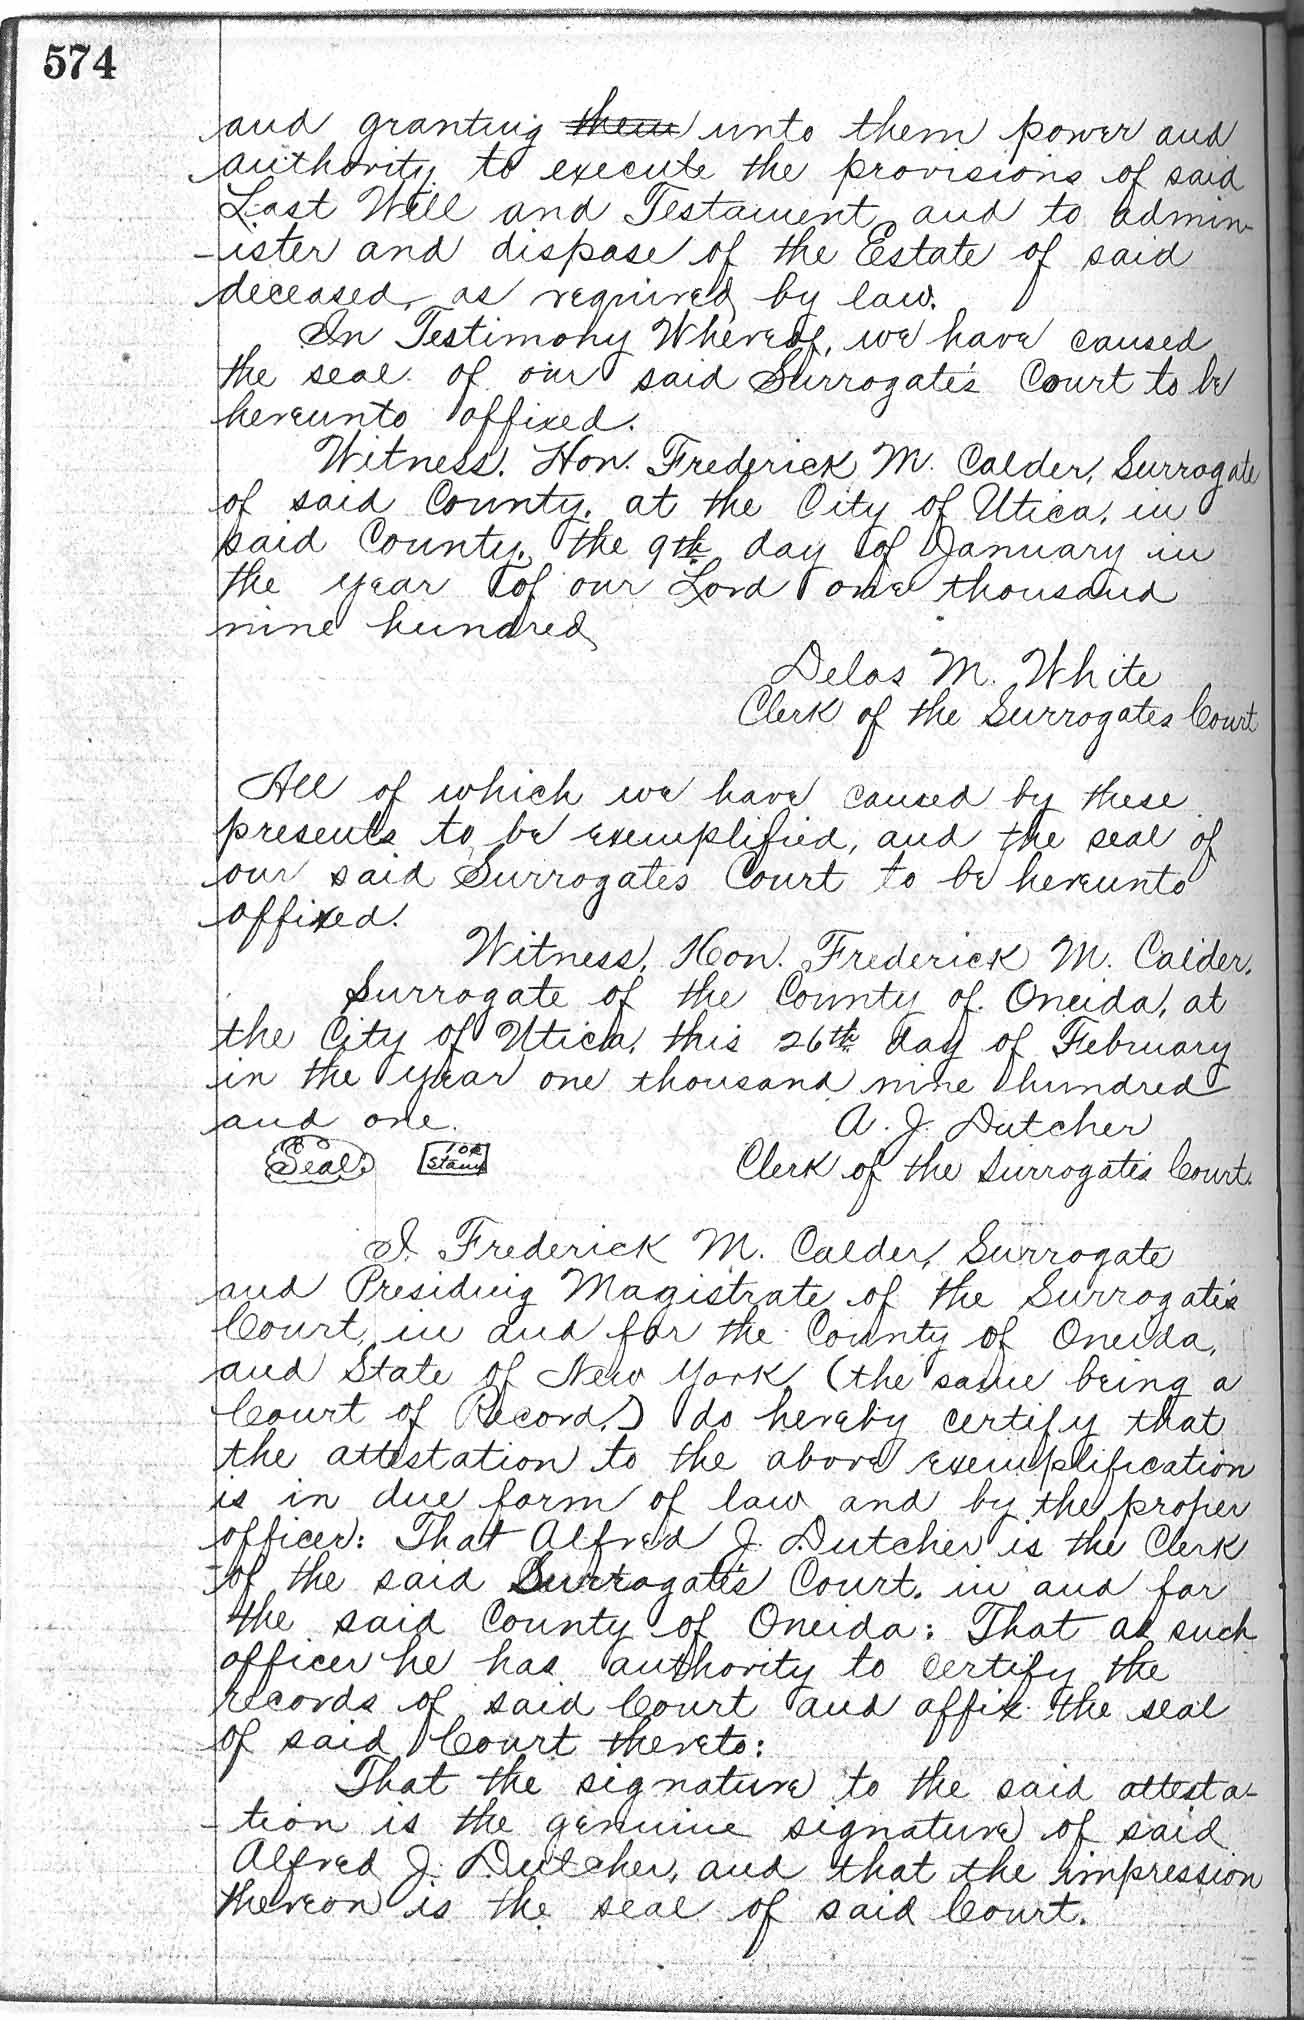 574
and granting ~~them~~ unto them power and
authority to execute the provisions of said
Last Will and Testament and to admin-
-ister and dispose of the Estate of said
deceased, as required by law.
In Testimony Whereof, we have caused
the seal of our said Surrogate's Court to be
hereunto affixed.
Witness. Hon. Frederick M. Calder, Surrogate
of said County, at the City of Utica, in
said County, the 9th day of January in
the year of our Lord one thousand
nine hundred
Delos M. White
Clerk of the Surrogates Court
All of which we have caused by these
presents to be exemplified, and the seal of
our said Surrogates Court to be hereunto
affixed.
Witness, Hon. Frederick M. Calder,
Surrogate of the County of Oneida, at
the City of Utica, this 26th day of February
in the year one thousand nine hundred
and one.
A. J. Dutcher
Seal. 10c Stamp
Clerk of the Surrogate's Court.
I. Frederick M. Calder, Surrogate
and Presiding Magistrate of the Surrogate's
Court, in and for the County of Oneida,
and State of New York, (the same being a
Court of Record,) do hereby certify that
the attestation to the above exemplification
is in due form of law and by the proper
officer: That Alfred J. Dutcher is the Clerk
of the said Surrogate's Court, in and for
the said County of Oneida: That as such
officer he has authority to certify the
records of said Court and affix the seal
of said Court thereto:
That the signature to the said attesta-
-tion is the genuine signature of said
Alfred J. Dutcher, and that the impression
thereon is the seal of said Court.